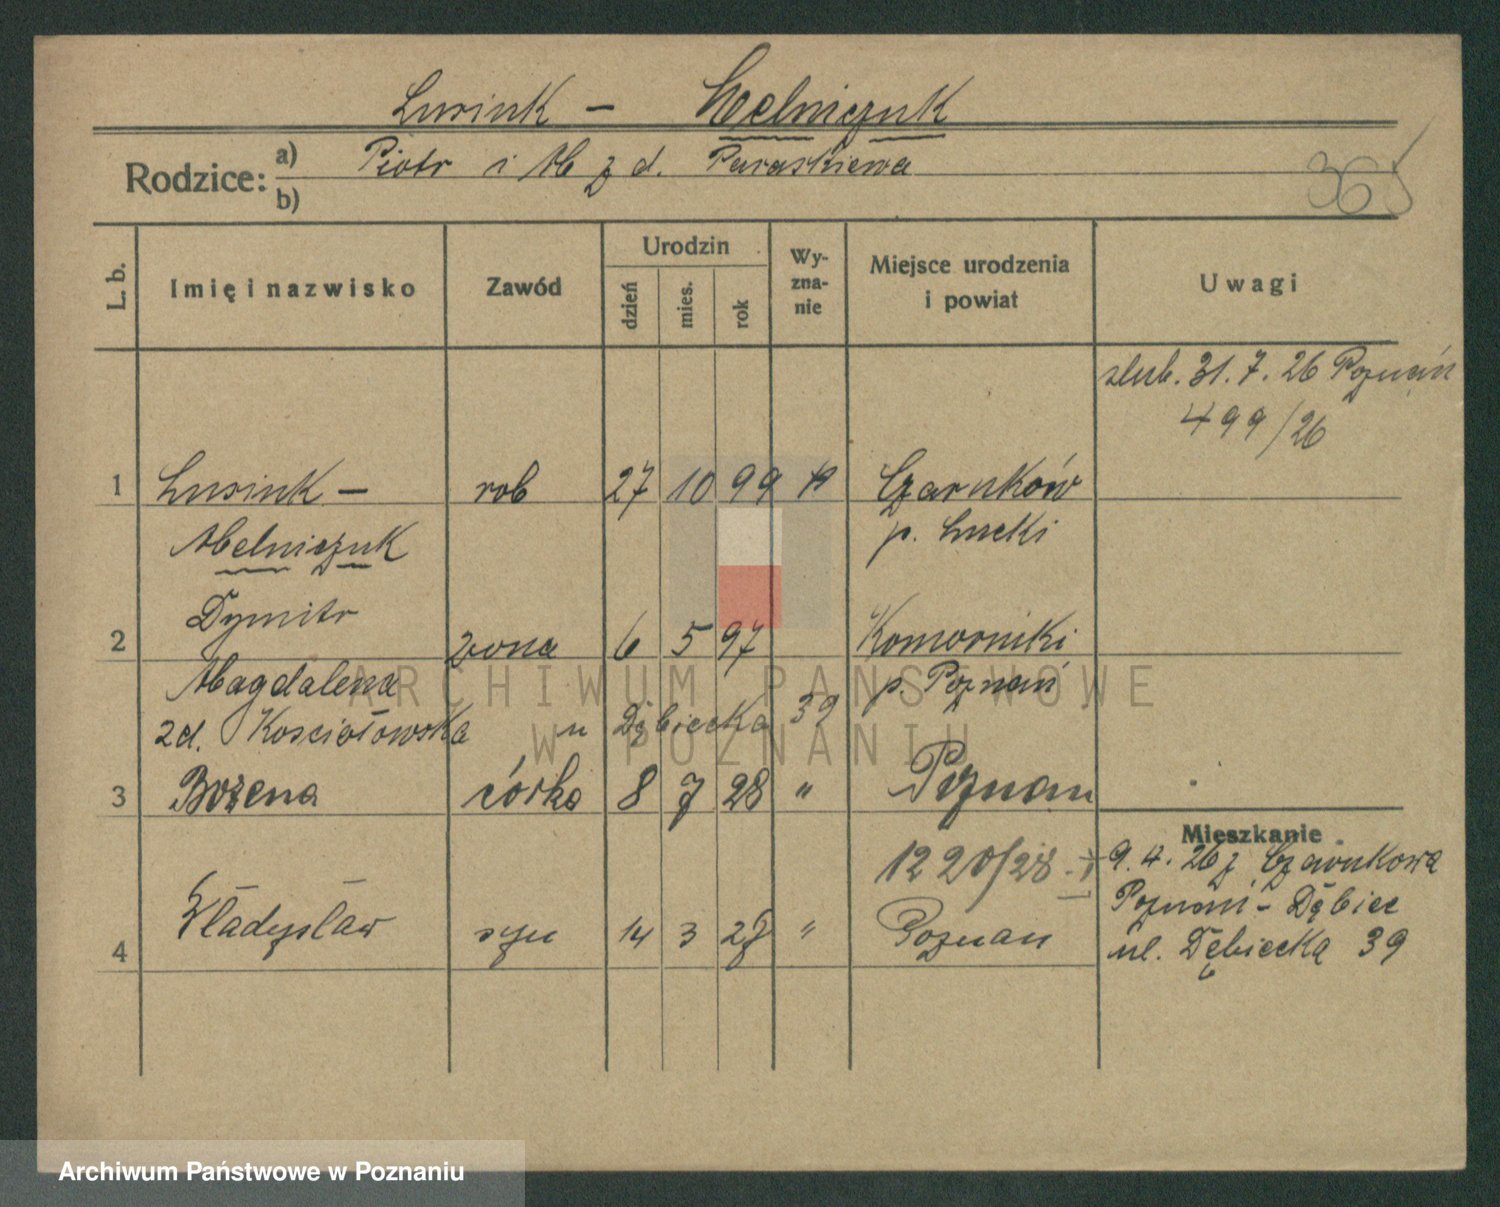 Lusiuk - Melniczuk
Rodzice: a) Piotr i M z d. Paraskiewa
b)
365
L. b. Imię i nazwisko Zawód Urodzin dzień mies. rok Wyznanie Miejsce urodzenia i powiat Uwagi
ślub. 31. 7. 26 Poznań
499/26
1 Lusiuk - rob 27 10 99 Czarnków
Melniczuk p. Łucki
Dymitr
2 żona 6 5 97 Komorniki
Magdalena p. Poznań
zd. Kosciołowska u Dębiecka 39
3 Bożena córka 8 7 28 " Poznan
Mieszkanie
1220/28 9. 4. 26 z Czarnkowa
Poznań - Dębiec
4 Władysław syn 14 3 27 " Poznan ul. Dębiecka 39
ARCHIWUM PAŃSTWOWE
W POZNANIU
Archiwum Państwowe w Poznaniu